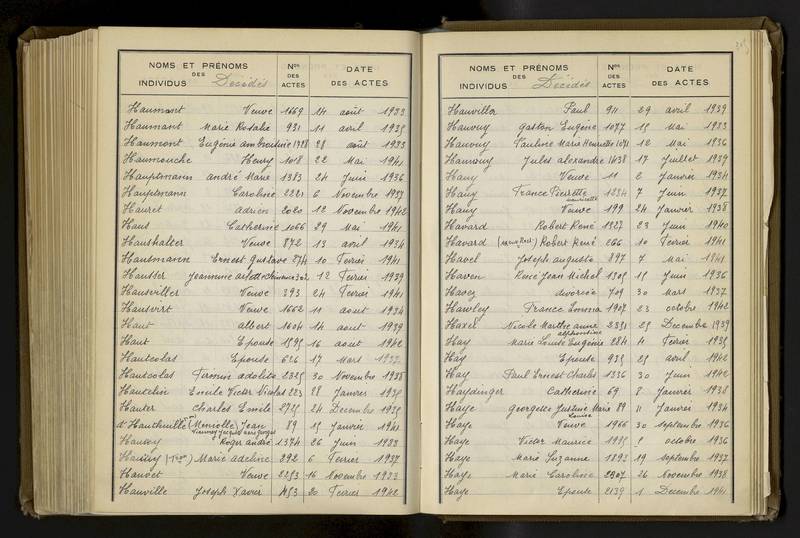 NOMS ET PRÉNOMS DES INDIVIDUS Décédés Nos DES ACTES DATE DES ACTES
Haumant Veuve 1669 24 août 1933
Haumant Marie Rosalie 931 11 avril 1935
Haumont Eugénie 28 août 1933
Haumouche Henry 1018 22 Mai 1941
Hauptmann andré Marie 1383 24 Juin 1936
Hauptmann Caroline 2221 6 Novembre 1937
Hauret adrien 2020 12 Novembre 1942
Haus Catherine 1066 29 Mai 1941
Haushalter Veuve 872 13 avril 1934
Hausmann Ernest Gustave 274 10 Fevrier 1941
Hausser Jeannine 12 Fevrier 1939
Hausviller Veuve 393 24 Fevrier 1941
Hausvirt Veuve 1662 11 aout 1934
Haut albert 1604 14 aout 1939
Haut Epouse 1595 16 aout 1942
Hautcolas Epouse 626 17 Mars 1937
Hautcolas Firmin adolphe 2325 30 Novembre 1938
Hautelin Emile Victor Nicolas 223 28 Janvier 1935
Hauter Charles Emile 2725 24 Decembre 1935
Jean 89 15 Janvier 1941
Roger andré 1374 26 Juin 1933
Marie adeline 292 6 Fevrier 1937
Hauvet Veuve 2253 16 Novembre 1933
Hauville Joseph Xavier 453 20 Fevrier 1942
NOMS ET PRÉNOMS DES INDIVIDUS Décédés Nos DES ACTES DATE DES ACTES
Hauviller Paul 911 29 avril 1939
Hauvuy Gaston Eugène 1077 15 Mai 1933
Hauvuy Pauline Marie Henriette 1071 12 Mai 1936
Hauvuy Jules alexandre 1638 17 Juillet 1939
Hauy Veuve 11 2 Janvier 1934
Hauy France Pierrette 1234 7 Juin 1937
Hauy Veuve 199 24 Janvier 1938
Havard Robert René 1327 23 Juin 1940
Havard Robert René 266 10 Fevrier 1941
Havel Joseph auguste 897 7 Mai 1941
Haven René Jean Michel 1305 15 Juin 1936
divorcée 709 30 Mars 1937
Hawley France Emma 1907 23 octobre 1942
Haxel Nicole Marthe anne 2331 25 Decembre 1939
Hay Marie Louise Eugénie 284 4 Fevrier 1935
Hay Epouse 935 25 avril 1942
Hay Paul Ernest Charles 1336 30 Juin 1942
Haydinger Catherine 69 8 Janvier 1938
Haye Georgette Justine Marie 89 11 Janvier 1934
Haye Veuve 1966 30 septembre 1936
Haye Victor Maurice 1985 8 octobre 1936
Haye Marie Suzanne 1893 19 septembre 1937
Haye Marie Caroline 2307 26 Novembre 1938
Haye Epouse 2139 1 Decembre 1941